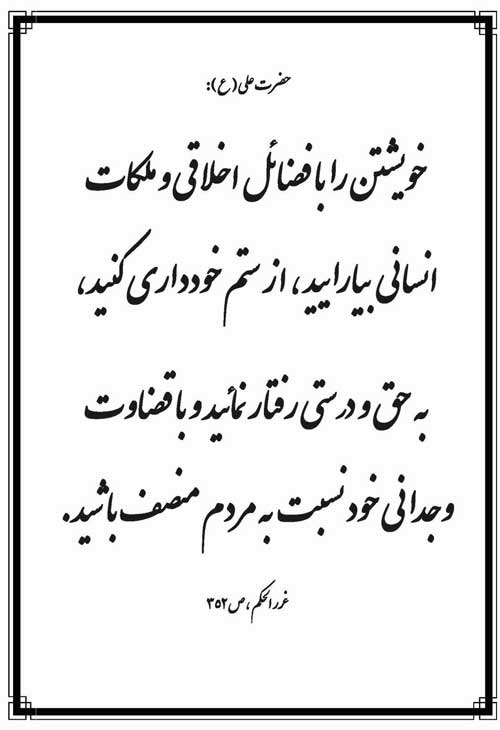 حضرت علی (ع):
خویشتن را با فضائل اخلاقی و ملکات
انسانی بیارایید، از ستم خودداری کنید،
به حق و درستی رفتار نمائید و با قضاوت
وجدانی خود نسبت به مردم منصف باشید.
غررالحکم، ص ۳۵۲